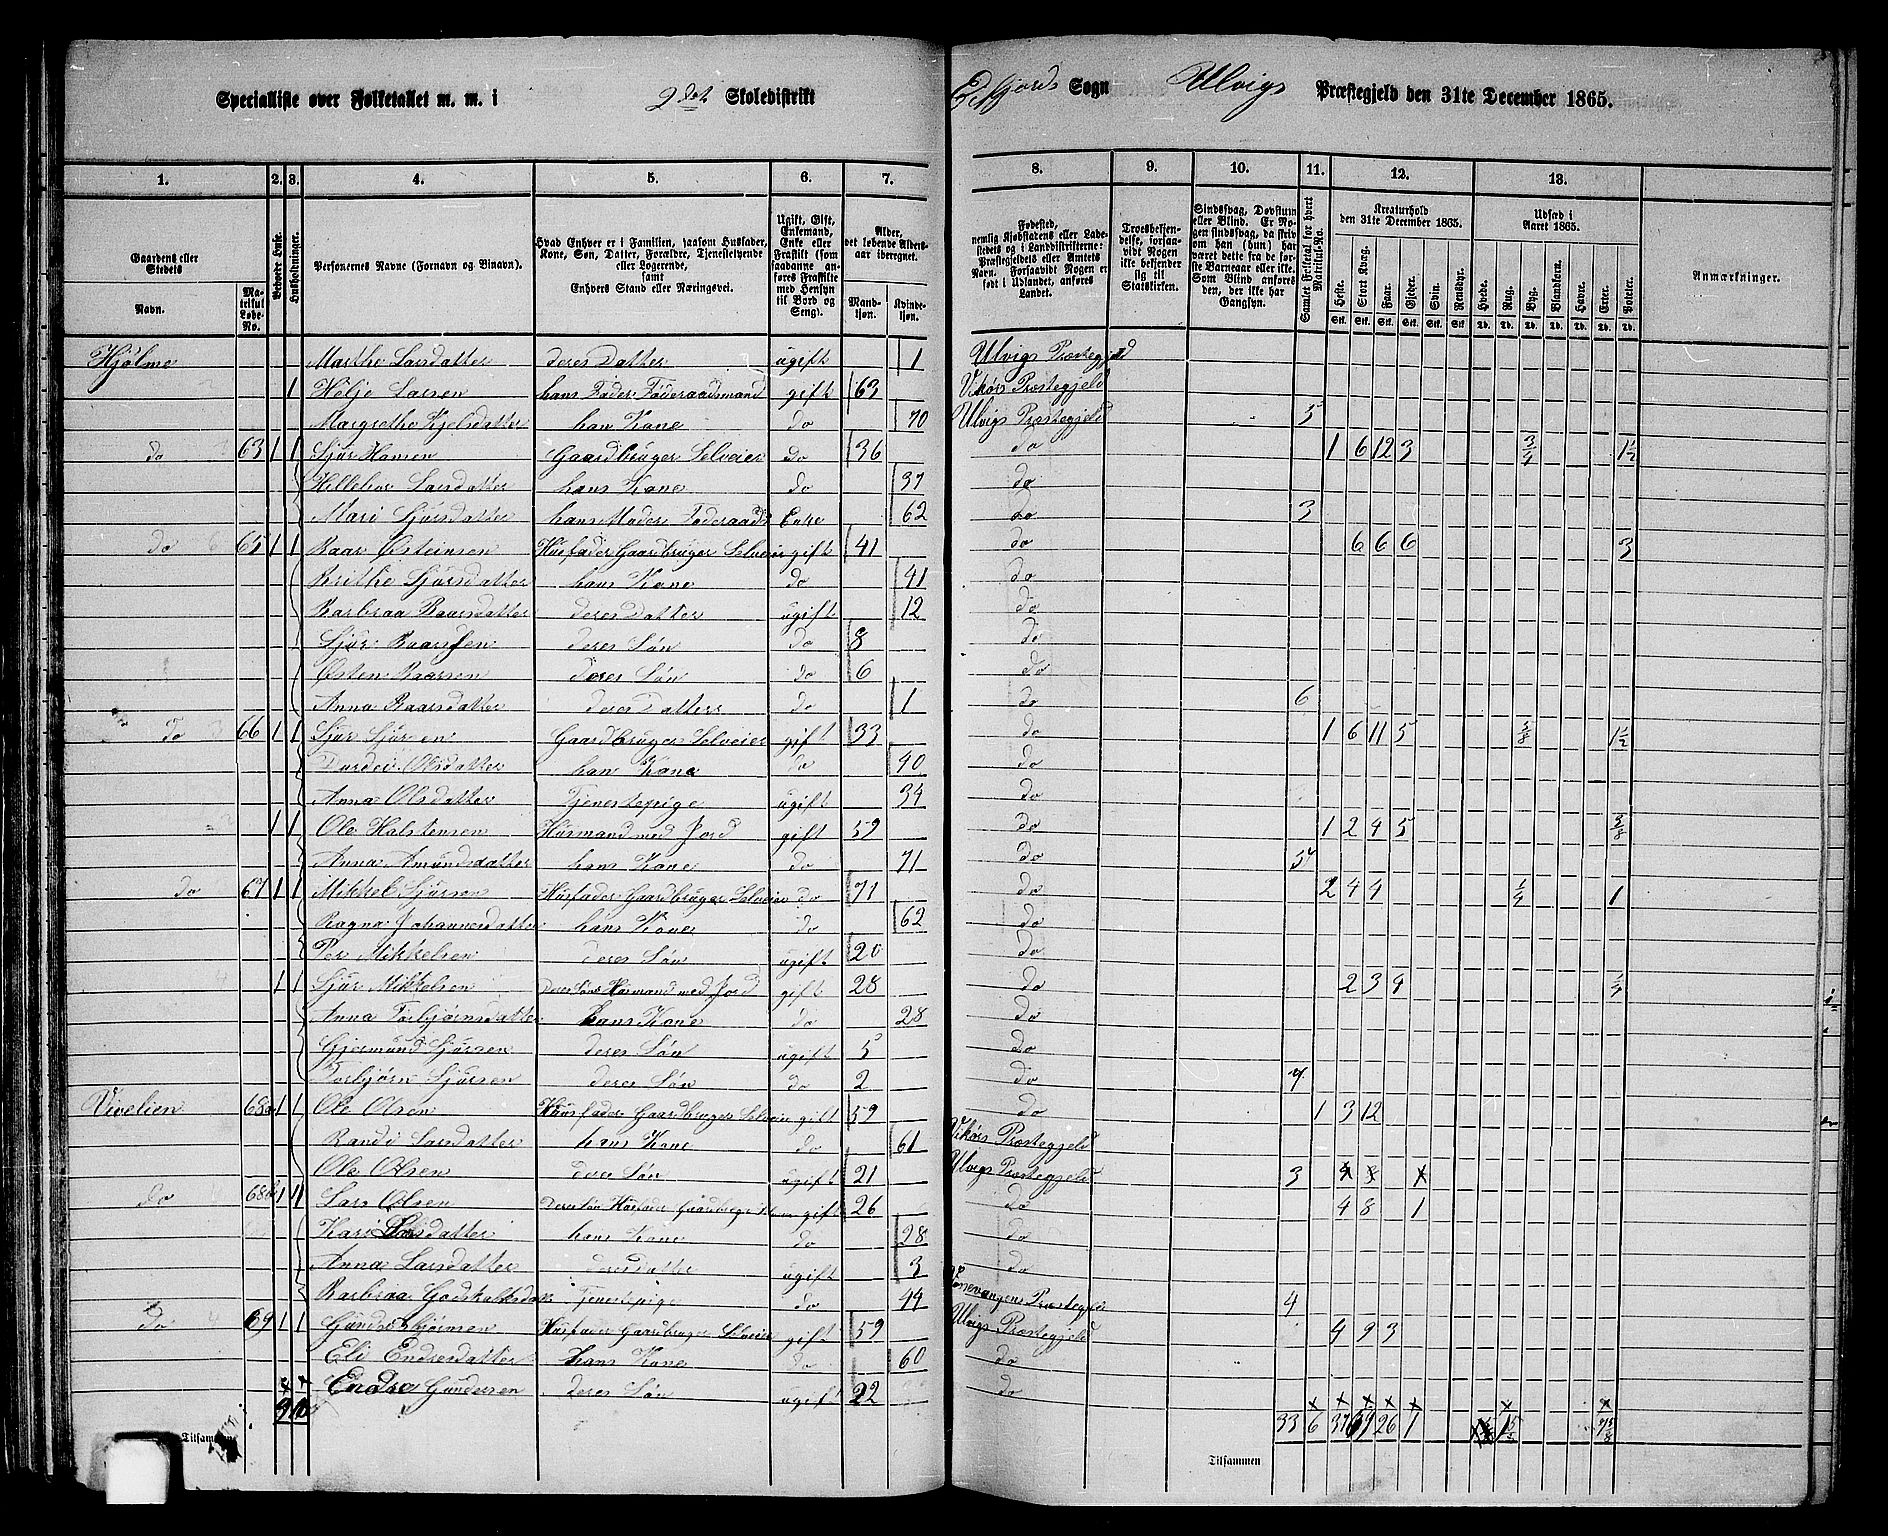 Specialliste over Folketallet m. m. i 9det Skoledistrikt Eifjords Sogn Ulvigs Præstegjeld den 31te December 1865.
1. 2. 3. 4. 5. 6. 7. 8. 9. 10. 11. 12. 13.
Gaardens eller Stedets Navn. Matrikul Løbe-No. Beboede Huse. Husholdninger. Personernes Navne (Fornavn og Binavn). Hvad Enhver er i Familien, saasom Husfader, Kone, Søn, Datter, Forældre, Tjenestetyende eller Logerende, samt Enhvers Stand eller Næringsvei. Ugift, Gift, Enkemand, Enke eller Fraskilt (som saadanne anføres Fraskilte med Hensyn til Bord og Seng). Alder, det løbende Aldersaar iberegnet. Mandkjøn. Kvindekjøn.
Fødested, nemlig Kjøbstadens eller Ladestedets og i Landdistrikterne: Præstegjeldets eller Amtets Navn. Forsaavidt Nogen er født i Udlandet, anføres Landet. Troesbekjendelse, forsaavidt Nogen ikke bekjender sig til Statskirken. Sindssvag, Døvstum eller Blind. Er Nogen sindssvag, da skriv om han (hun) har været dette fra de første Barneaar eller ikke. Som Blind anføres den, der ikke har Gangsyn. Samlet Folketal for hvert Matrikul-No. Kreaturhold den 31te December 1865. Heste. Stort Kvæg. Faar. Gjeder. Svin. Rensdyr. Udsæd i Aaret 1865. Hvede. Rug. Byg. Blandkorn. Havre. Erter. Poteter. Anmærkninger.
Hjølmo Marthe Larsdatter deres Datter ugift 1 Ulvigs Præstegjeld
1 Helje Larsen hans Fader Føderaadsmand gift 63 Vikørs Præstegjeld
Margrethe Kjelsdatter han Kone do 70 Ulvigs Præstegjeld 5
do 63 1 1 Sjur Hansen Gaardbruger Selveier do 36 do 1 6 12 3 3/4 1 1/2
Hilleborr Larsdatter hans Kone do 37 do
Mari Sjursdatter hans Moder Føderaads Enke 62 do 3
do 65 1 1 Baar Østeinsen Husfader Gaardbruger Selveier gift 41 do 6 6 6 3
Brithe Sjursdatter hans Kone do 41 do
Barbraa Baarsdatter deres Datter ugift 12 do
Sjur Baarsen deres Søn do 8 do
Østen Baarsen deres Søn do 6 do
Anna Baarsdatter deres Datter do 1 do 6
do 66 1 1 Sjur Sjursen Gaardbruger Selveier gift 33 do 1 6 11 5 1 1/2
Durdei Olsdatter han Kone do 40 do
Anna Olsdatter Tjenestepige ugift 34 do
1 1 Ole Halstensen Husmand med Jord gift 59 do 1 2 4 5 3/8
Anna Amundsdatter hans Kone do 71 do 5
do 67 1 1 Mikkel Sjursen Husfader Gaardbruger Selveier do 71 do 2 4 4 1/4 1
Ragna Johannesdatter hans Kone do 62 do
Per Mikkelsen deres Søn ugift 20 do
1 1 Sjur Mikkelsen Deres Søn Husmand med Jord gift 28 do 2 3 4 1/4
Anna Torbjørnsdatter hans Kone do 28 do
Gjermund Sjursen deres Søn ugift 5 do
Torbjørn Sjursen deres Søn do 2 do 7
Vivelien 68a 1 1 Ole Olsen Husfader Gaardbruger Selveier gift 59 do 1 3 12
Randi Larsdatter hans Kone do 61 Vikørs Præstegjeld
Ole Olsen deres Søn ugift 21 Ulvigs Præstegjeld 3
do 68b 1 1 Lars Olsen Deres Søn Husfader Gaardbruger gift 26 do 4 8 1
Kari Larsdatter hans Kone do 28 do
Anna Larsdatter deres datter ugift 3 do
Barbraa Godskalksdatter Tjenestepige do 44 Præstegjeld 4
do 69 1 1 Gunder Husfader Gaardbruger Selveier gift 59 Ulvigs Præstegjeld 4 9 3
Eli Endresdatter hans Kone do 60 do
Endre Gundersen deres Søn ugift 22 do
Tilsammen 9 Tilsammen 33 6 37 26 1